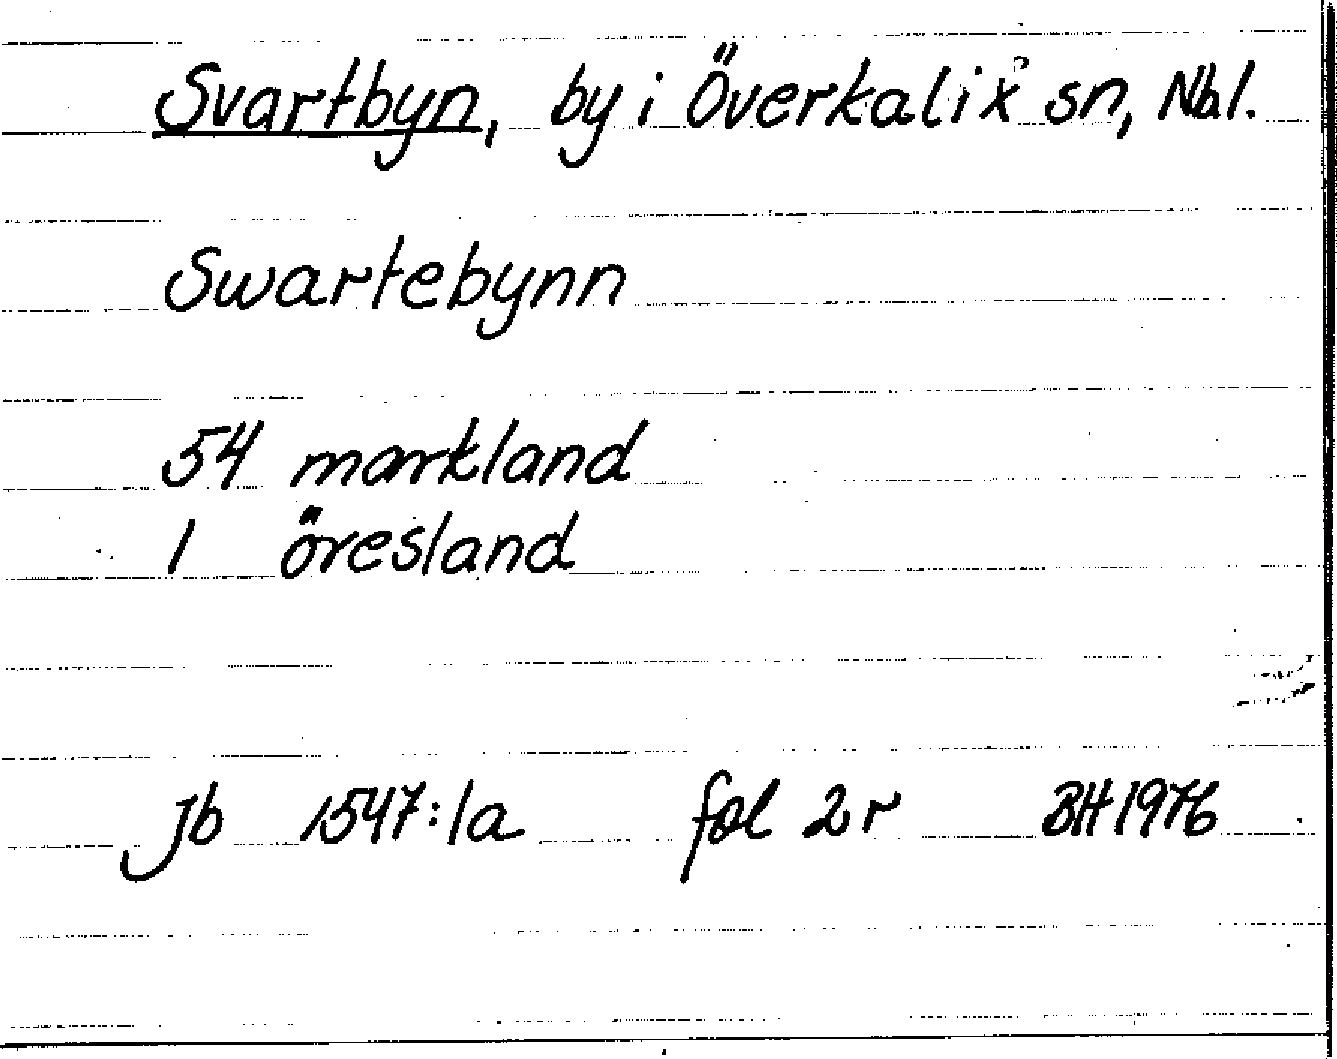 Svartbyn, by i Överkalix sn, Nbl.
Swartebynn
54 markland
1 öresland
Jb 1547:1a fol 2r BH 1976